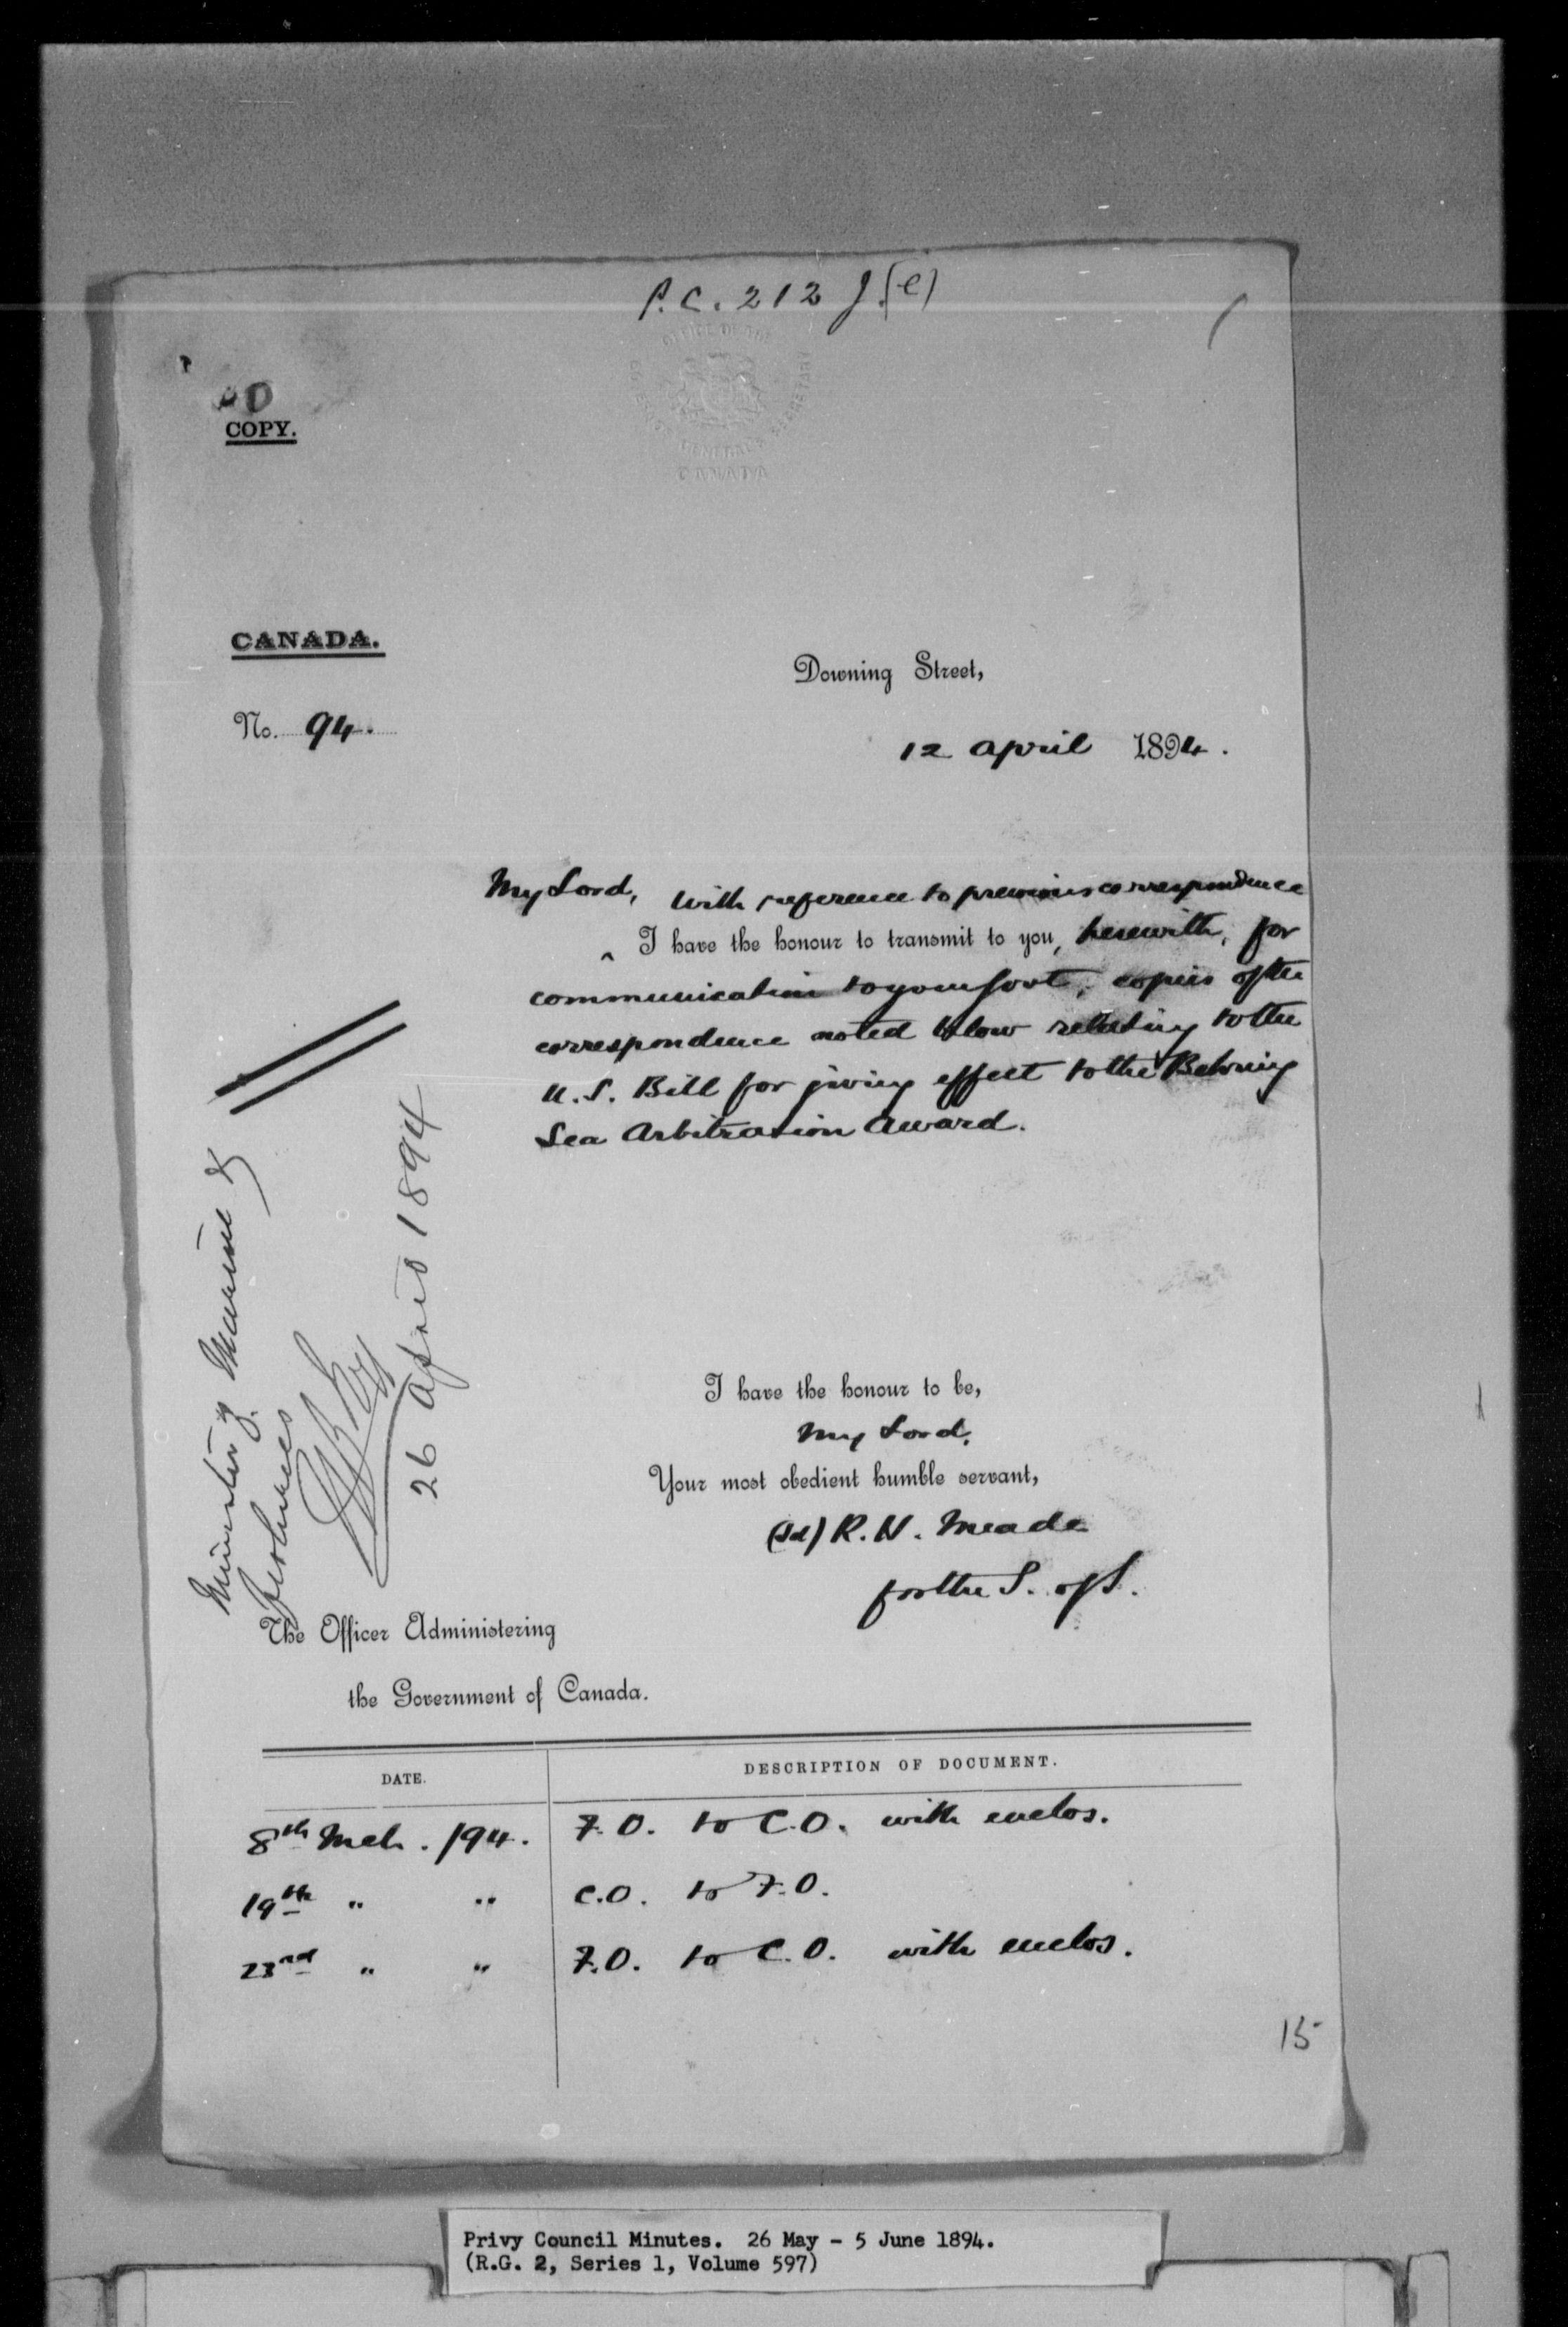 P.C. 212 J.(e)
OFFICE OF THE
GOVERNOR GENERAL'S SECRETARY
CANADA
COPY.
CANADA.
No. 94.
Downing Street,
12 April 1894.
My Lord, With reference to previous correspondence
^ I have the honour to transmit to you, herewith, for
communication to your Govt, copies of the
correspondence noted below relating to the
U.S. Bill for giving effect to the Behring
Sea Arbitration Award.
I have the honour to be,
My Lord,
Your most obedient humble servant,
(Sd) R. H. Meade
for the S. of S.
Minister of Marine &
Fisheries
26 April 1894
The Officer Administering
the Government of Canada.
DATE. DESCRIPTION OF DOCUMENT.
8th Mch. /94. F.O. to C.O. with enclos.
19th " " C.O. to F.O.
23rd " " F.O. to C.O. with enclos.
15
Privy Council Minutes. 26 May - 5 June 1894.
(R.G. 2, Series 1, Volume 597)